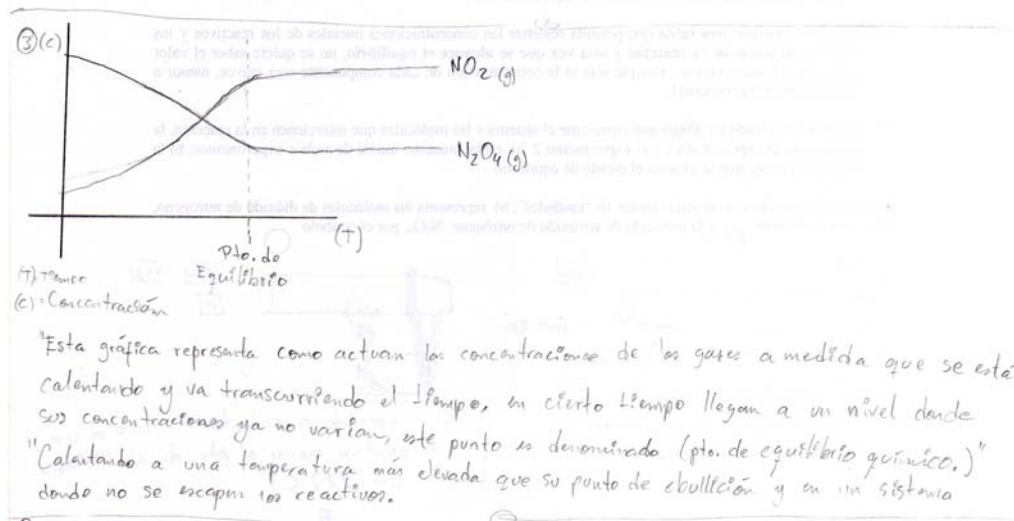 ③(c)
NO₂(g)
N₂O₄(g)
(T)
Pto. de
Equilibrio
(T) Tiempo
(c) = Concentración
"Esta gráfica representa como actuan las concentraciones de los gases a medida que se está
calentando y va transcurriendo el tiempo, en cierto tiempo llegan a un nivel donde
sus concentraciones ya no varian, este punto es denominado (pto. de equilibrio químico.)"
"Calentando a una temperatura más elevada que su punto de ebullición y en un sistema
donde no se escapen los reactivos.